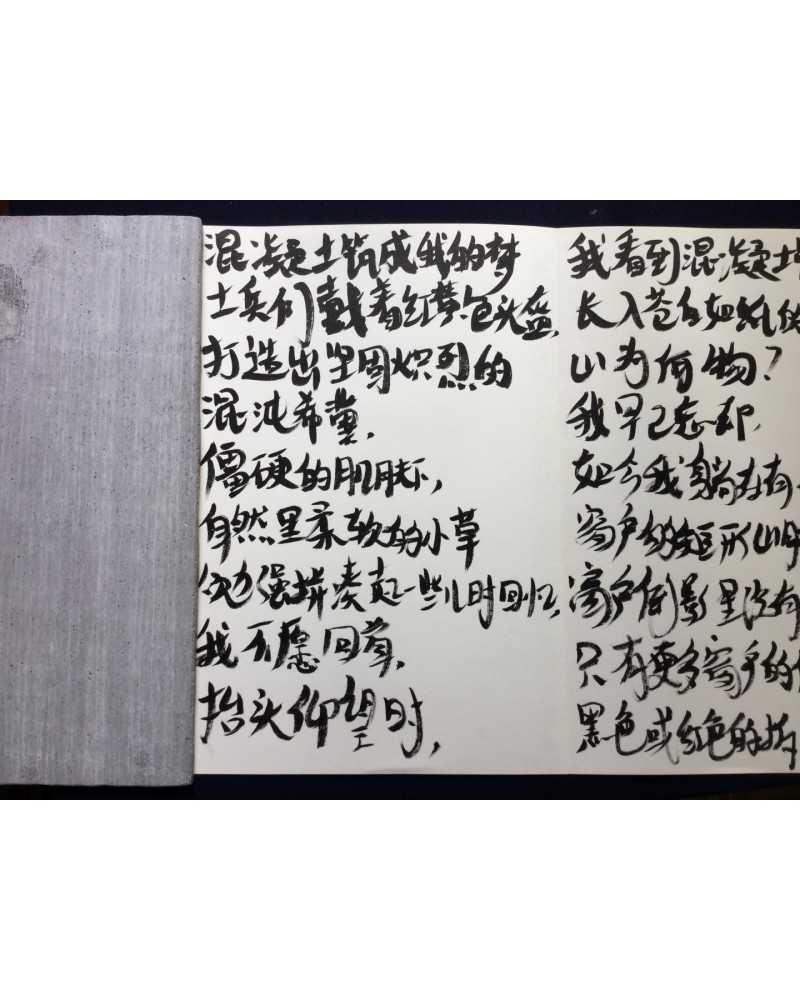 混凝土筑成我的梦
士兵们戴着红黄色头盔,
打造出坚固炽烈的
混沌希冀,
僵硬的肌肤,
自然里柔软的小草
勉强拼凑起一些儿时回忆,
我不愿回首,
抬头仰望时,
我看到混凝土
长入苍白如纸
山为何物?
我早已忘却,
如今我躺在有
窗户的矩形山
窗户倒影里没有
只有更多窗户的
黑色或红色的